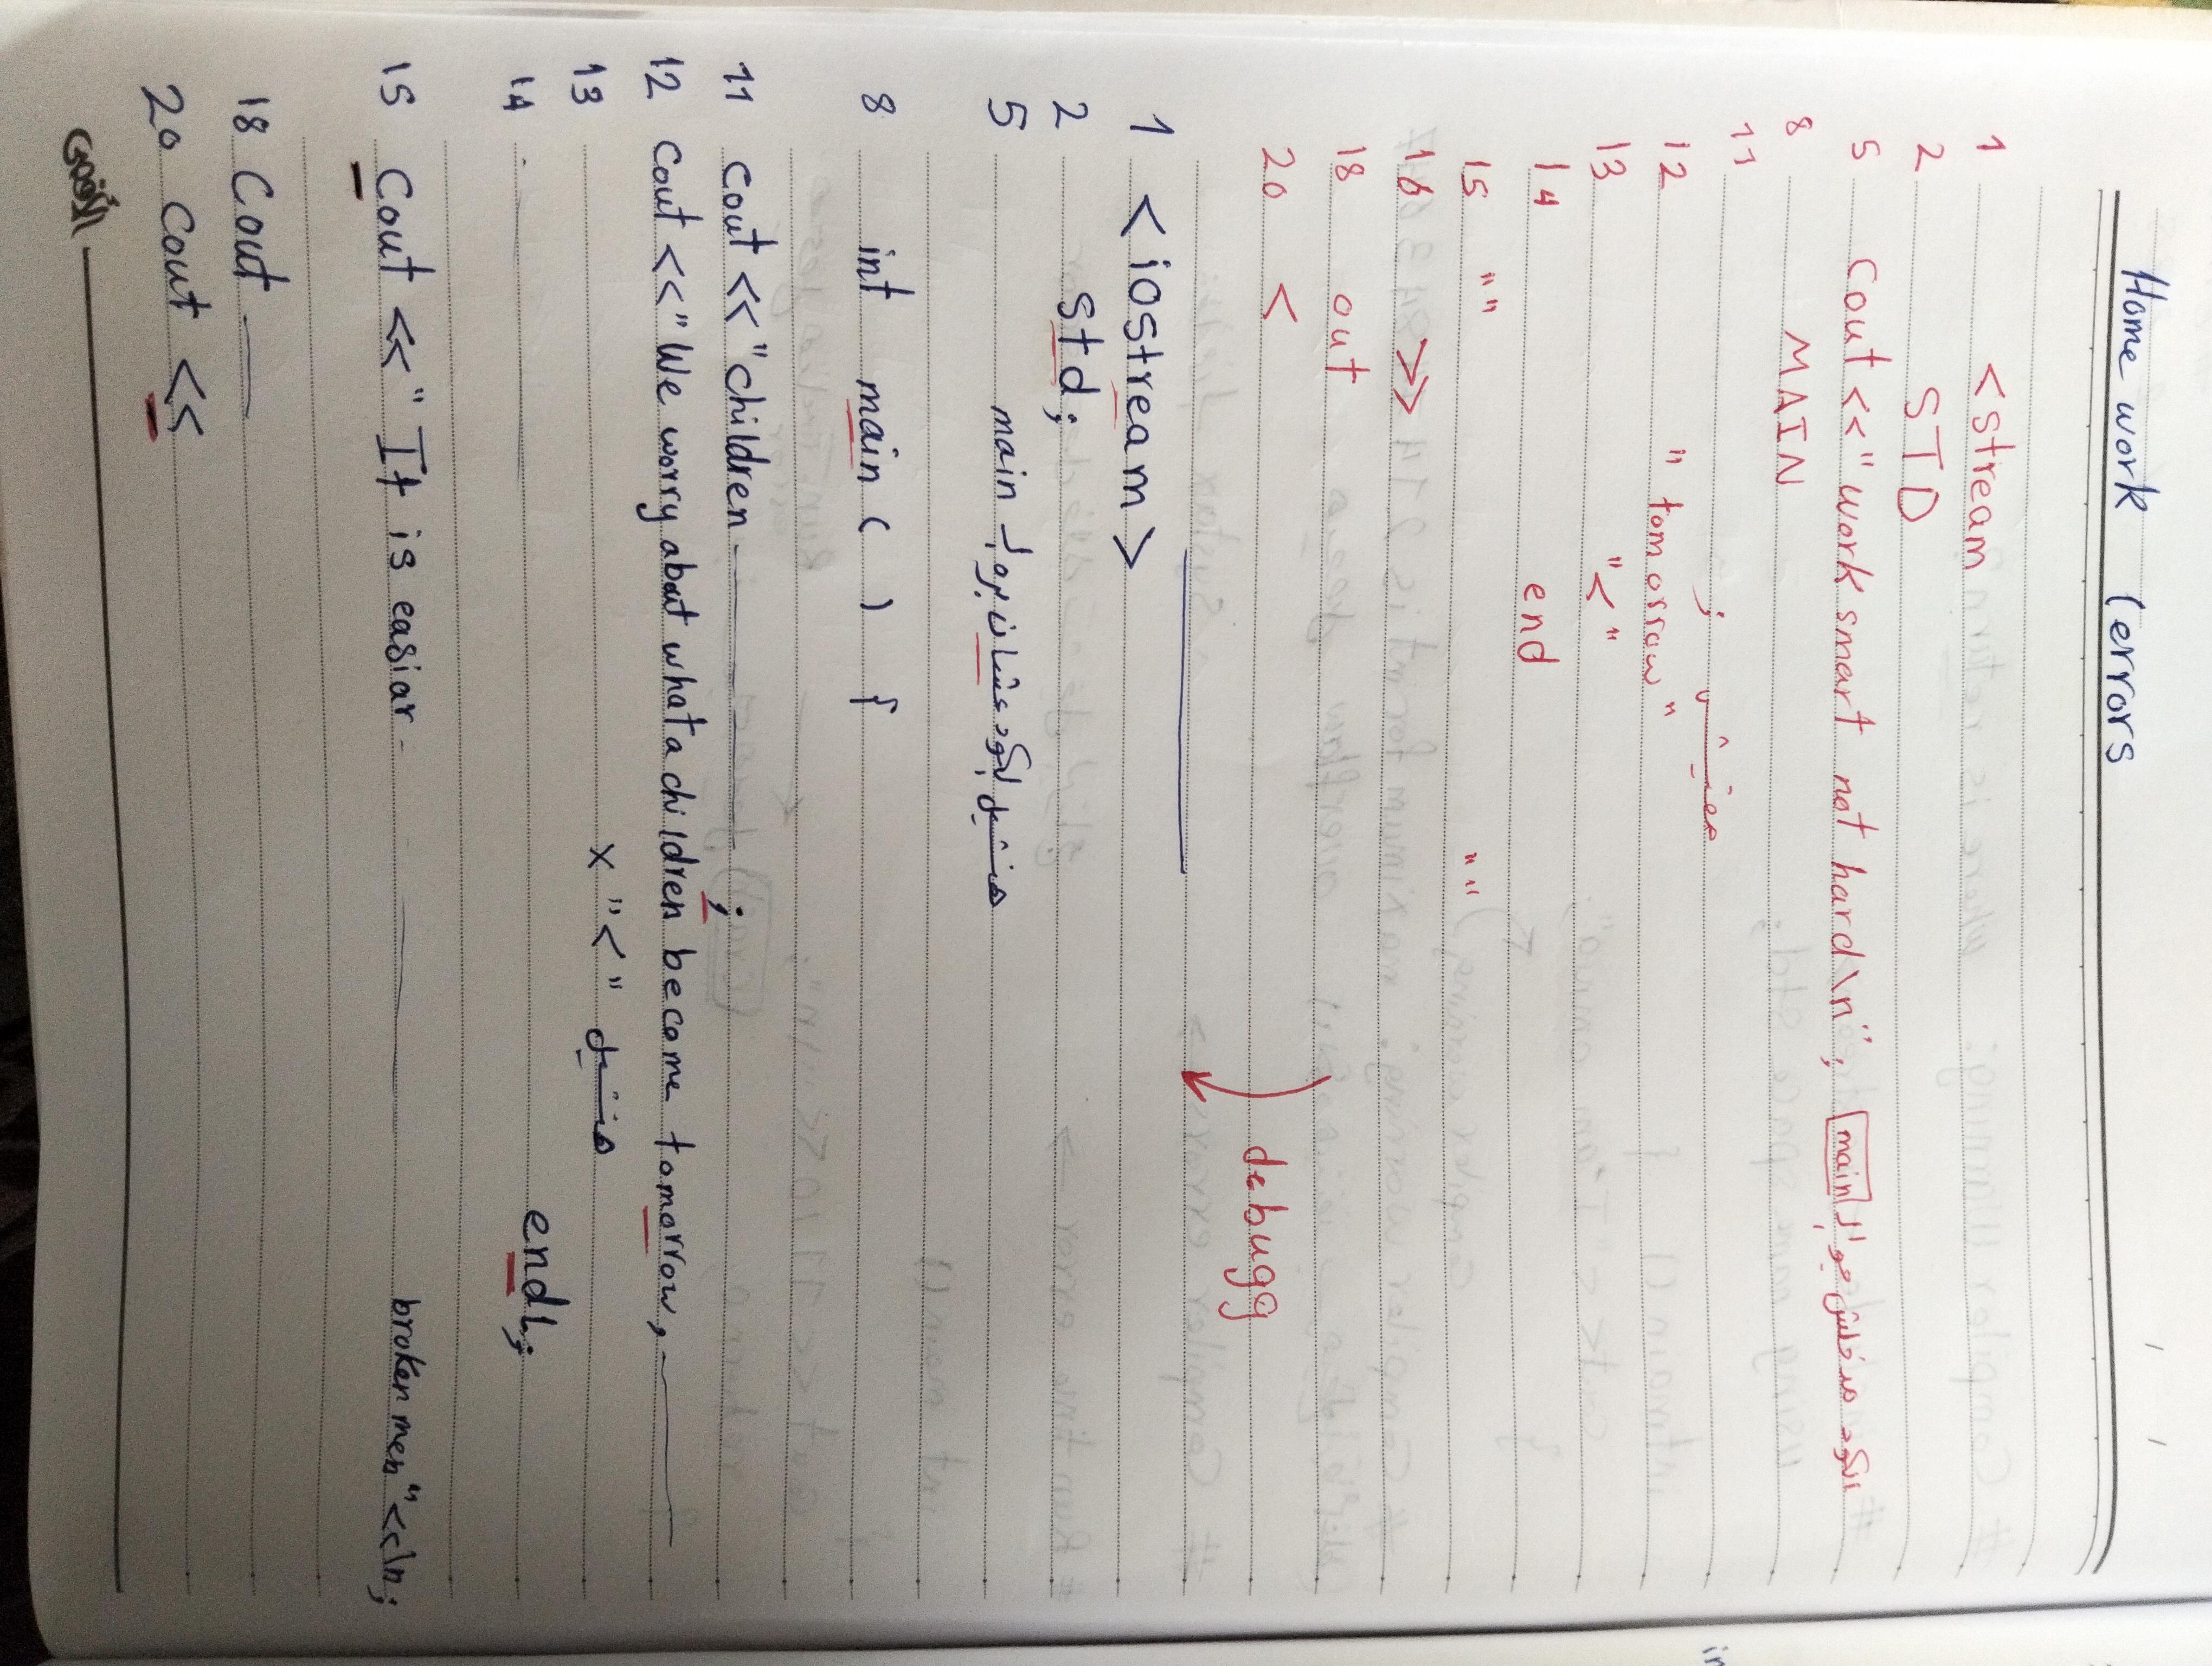 Home work (errors
1 <stream
2 STD
5 Cout << "work smart not hard\n"; main مدخلش جوا ال الكود
8 MAIN
11 ; مفيش
12 "tomorrow"
13 "<"
14 end
15 "" ""
16 >>
18 out
20 <
debugg
1 <iostream>
2 std;
5 main منشيل الكود عشان برا ال
8 int main ( ) {
11 cout << "children ;
12 Cout << "We worry about what a children become tomorrow,
13 x "<" منشيل
14 endl;
15 Cout << "It is easiar broken men" <<ln;
18 Cout
20 Cout <<